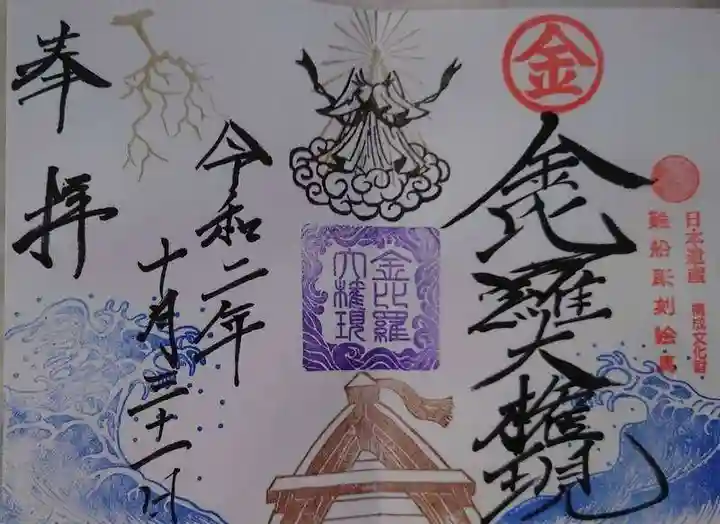 金
金毘羅大権現
日本遺産 構成文化財
難船彫刻絵馬
金比羅
大権現
令和二年
十月三十一日
奉拝